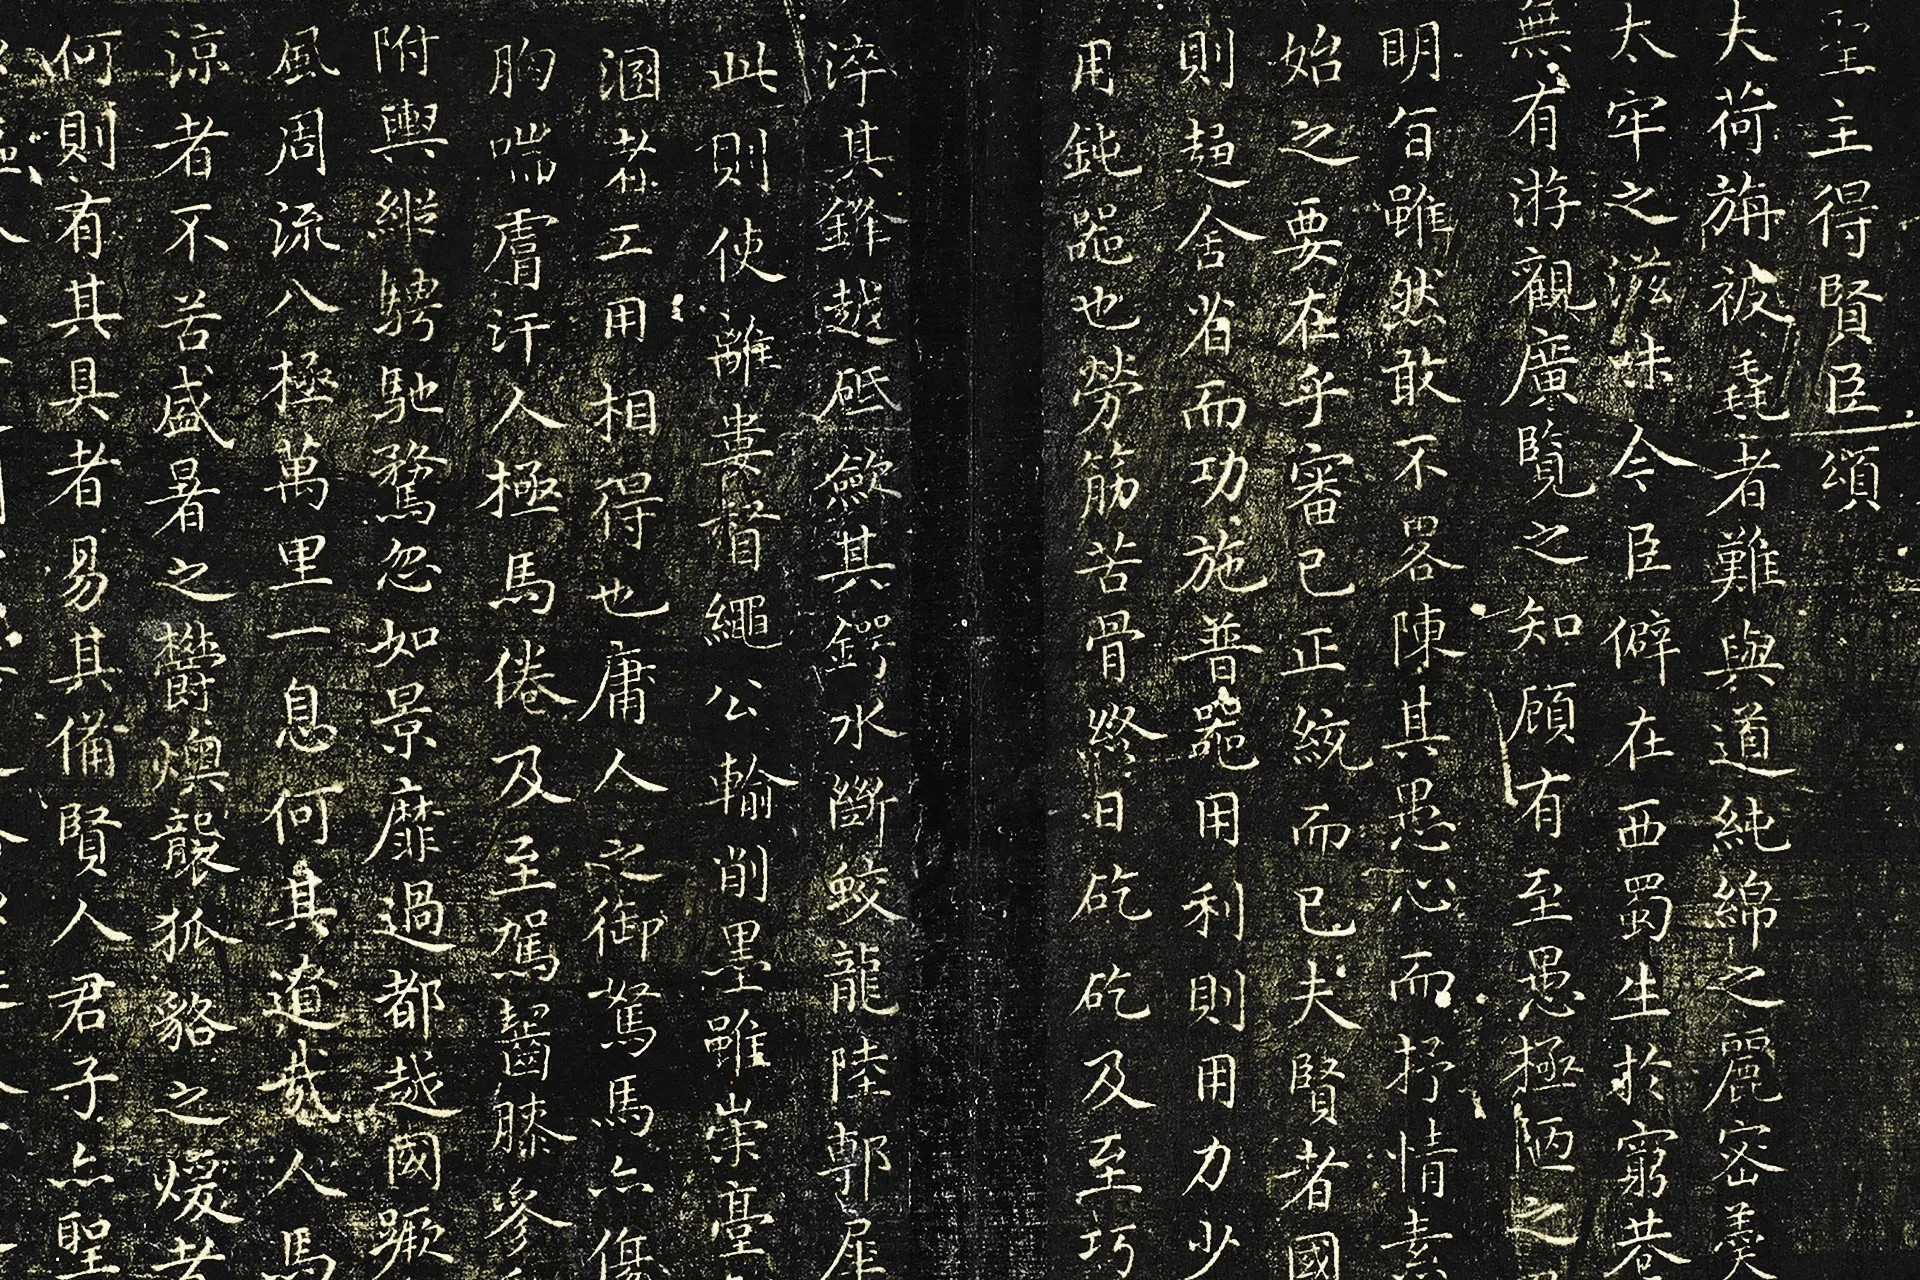 聖主得賢臣頌
夫荷旃被毳者難與道純綿之麗密羹
太牢之滋味今臣僻在西蜀生於窮巷
無有游觀廣覽之知顧有至愚極陋之
明旨雖然敢不畧陳其愚心而抒情素
始之要在乎審己正統而已夫賢者國
則趨舍省而功施普器用利則用力少
用鈍器也勞筋苦骨終日矻矻及至巧
淬其鋒越砥斂其鍔水斷蛟龍陸剸犀
此則使離婁督繩公輸削墨雖崇臺
溷者工用相得也庸人之御駑馬亦傷
胸喘膚汗人極馬倦及至駕齧膝參
附輿縱騁馳騖忽如景靡過都越國蹶
風周流八極萬里一息何其遼哉人馬
涼者不苦盛暑之鬱燠襲狐貉之煖者
何則有其具者易其備賢人君子亦聖